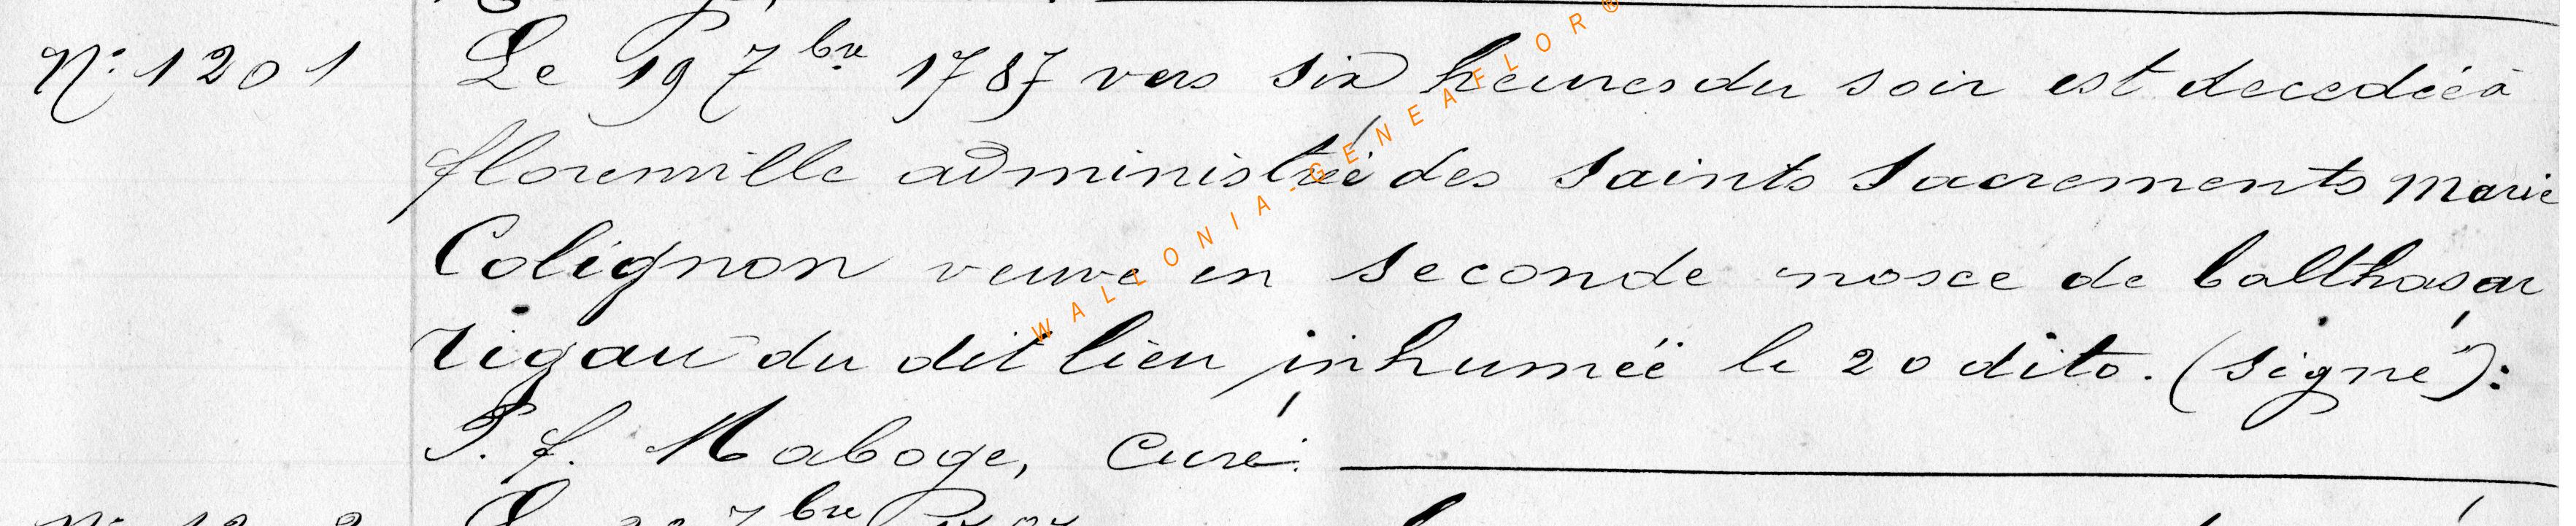 N.º 1201 Le 19 7bre 1787 vers six heures du soir est decedée à
florenville administrée des saints sacrements marie
Colignon veuve en seconde nosce de balthasar
rigau du dit lieu inhumée le 20 dito. (signé):
P. f. Maboge, Curé.
WALLONIA.GENEAFLOR®